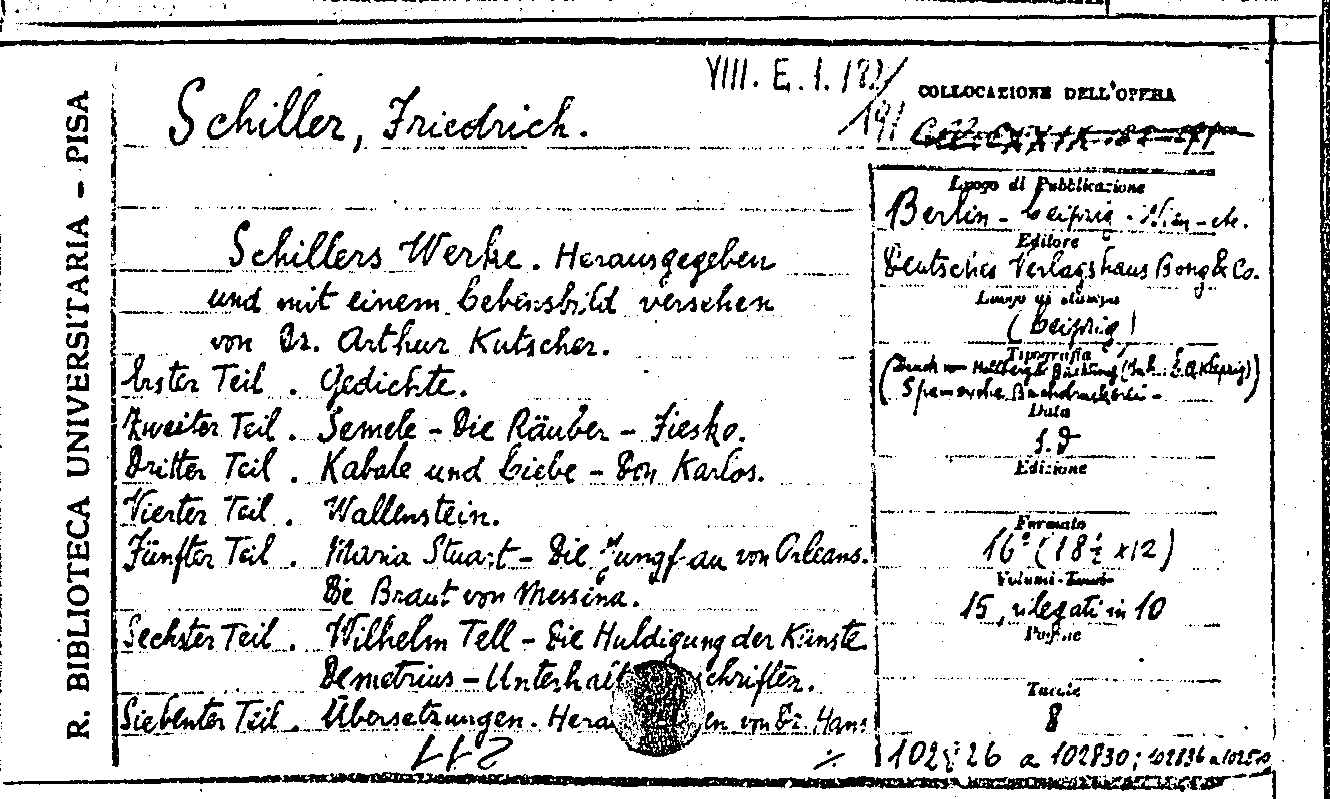 R. BIBLIOTECA UNIVERSITARIA - PISA
VIII. E. 1. 182/
191
COLLOCAZIONE DELL'OPERA
Schiller, Friedrich.
Schillers Werke. Herausgegeben
und mit einem Lebensbild versehen
von Dr. Arthur Kutscher.
Erster Teil. Gedichte.
Zweiter Teil. Semele - Die Räuber - Fiesko.
Dritter Teil. Kabale und Liebe - Don Karlos.
Vierter Teil. Wallenstein.
Fünfter Teil. Maria Stuart - Die Jungfrau von Orleans.
Die Braut von Messina.
Sechster Teil. Wilhelm Tell - Die Huldigung der Künste
Demetrius - Unterhalt schriften.
Siebenter Teil. Übersetzungen. Hera en von Dr. Hans
Luogo di Pubblicazione
Berlin - Leipzig - Wien - etc.
Editore
Deutsches Verlagshaus Bong & Co.
Luogo di stampa
(Leipzig)
Tipografia
(Druck von Hallberg & Büchting (Inh.: L.A. Klepzig)
Spamersche Buchdruckerei -
Data
s.d
Edizione
Formato
16° (18½ x 12)
Volumi-Tomi
15, rilegati in 10
Pagine
Tavole
8
102826 a 102830; 102836 a